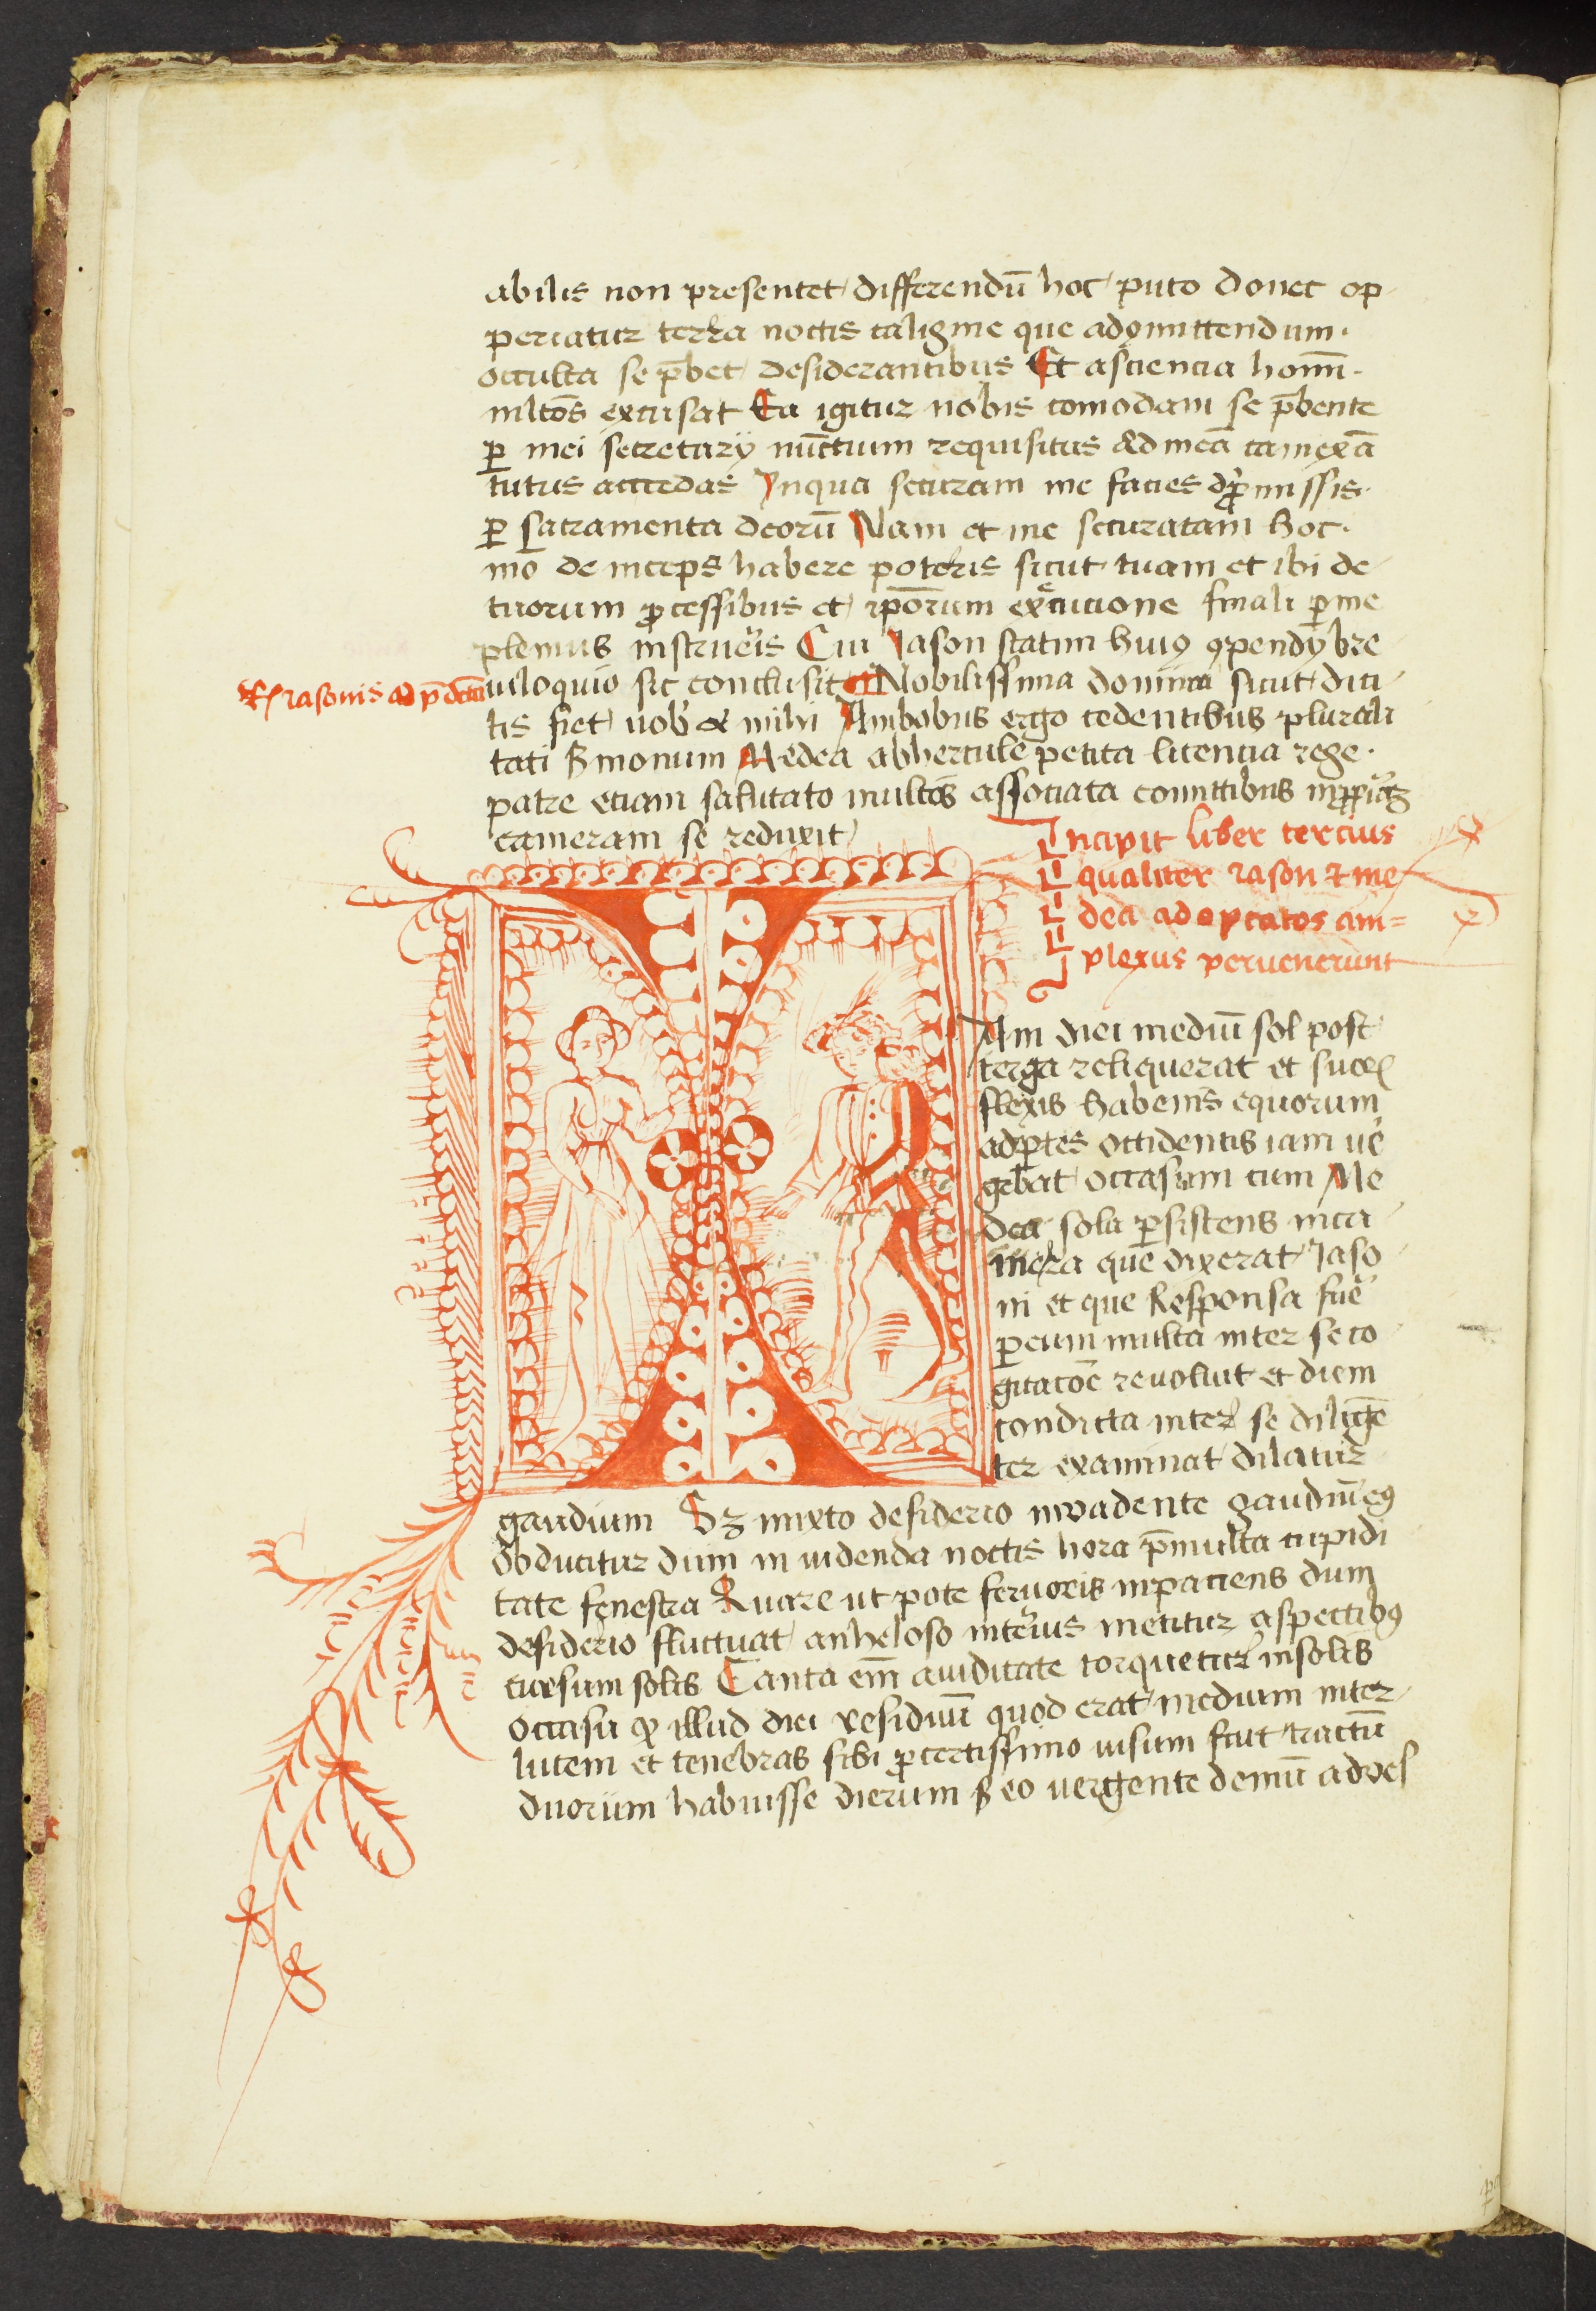 abilis non presentet differendū hoc puto donec op
periatur terra noctis caligine que ad gmittendum
occulta se p̄bet desiderantibus Et asciencia homī
nū ltōs excusat Ea igitur nobis comodam se p̄bente
ꝑ mei secretarÿ nūctium requisitus ad meā camerā
tutus accedas Inqua securam me facies
ꝑ sacramenta deorū Nam et me securatam hoc
mō de inceps habere poteris sicut tuam et ibi de
tuorum ꝓcessibus et ip̄orum execucione finali ꝑ me
plenius instrueris Cui Jason statim huiꝰ ꝯpendÿ bre
Rn̄ iasonis ad p̄dcta
uiloquio sic conclusit Nobilissima domina sicut dici
tis fiet uob̄ & mihi Ambobus ergo cedentibus plurali
tati ẞmonum Medea abhercule petita licencia rege
patre etiam salutato multos associata comittibus
cameram se reduxit
Incipit liber tercius
qualiter iason & me
dea ad optatos am=
plexus peruenerunt
Iam diei mediū sol post
terga reliquerat et suoꝝ
flexis habenis equorum
ad ꝑtes occidentis iam uē
gebat occasum cum Me
dea sola ꝑsistens in ca
mera que dixerat Jaso
ni et que Responsa fuē
ꝑ eum multa inter se co
gitacōe reuoluit et diem
condicta inter se diligē
ter examinat dilatur
gaudium Sꝫ mixto desiderio inuadente gaudiū eꝰ
obducitur dum in uidenda noctis hora p̄multa cupidi
tate fenestra Quare ut pote feruoris inpaciens dum
desiderio fluctuat anheloso interius metitur aspectibꝰ
cursum solis Tanta em̄ auiditate torquetur in solis
occasu ꝙ illud diei residuū quod erat medium inter
lucem et tenebras sibi ꝓ certissimo uisum fuit tractū
duorum habuisse dierum ẞ eo uergente demū ad ves